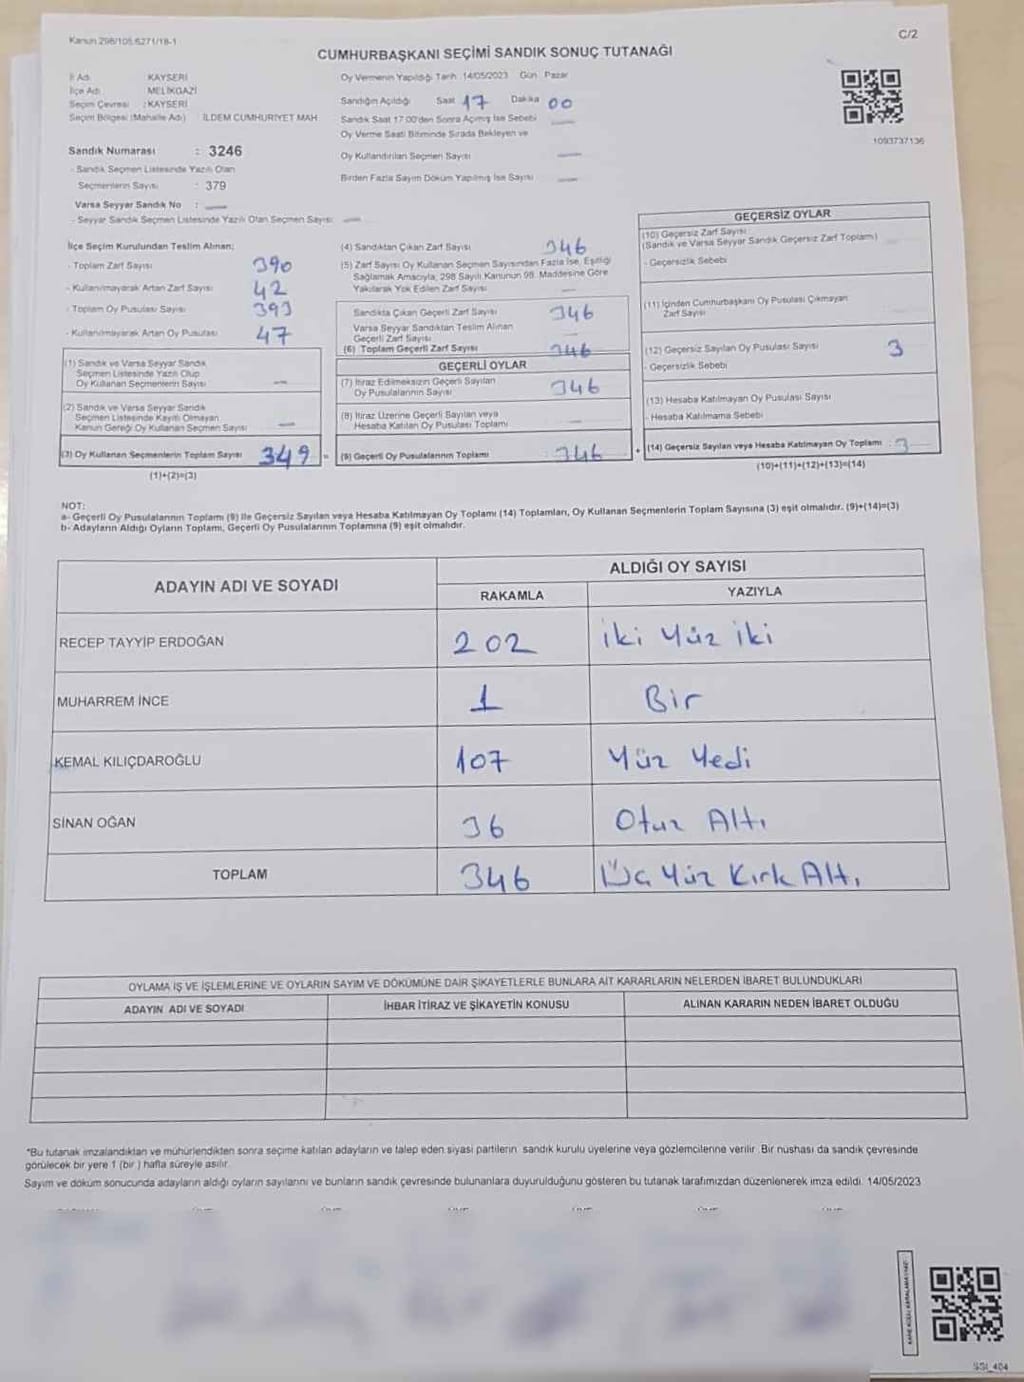 Kanun 298/105,6271/18-1
C/2
CUMHURBAŞKANI SEÇİMİ SANDIK SONUÇ TUTANAĞI
İl Adı KAYSERİ
İlçe Adı MELİKGAZİ
Seçim Çevresi : KAYSERİ
Seçim Bölgesi (Mahalle Adı) İLDEM CUMHURİYET MAH
Oy Vermenin Yapıldığı Tarih 14/05/2023 Gün Pazar
Sandığın Açıldığı Saat 17 Dakika 00
Sandık Saat 17.00'den Sonra Açımış İse Sebebi
Oy Verme Saati Bitiminde Sırada Bekleyen ve
Oy Kullandırılan Seçmen Sayısı
Birden Fazla Sayım Döküm Yapılmış İse Sayısı
1093737136
Sandık Numarası : 3246
- Sandık Seçmen Listesinde Yazılı Olan
Seçmenlerin Sayısı : 379
Varsa Seyyar Sandık No :
- Seyyar Sandık Seçmen Listesinde Yazılı Olan Seçmen Sayısı
İlçe Seçim Kurulundan Teslim Alınan;
- Toplam Zarf Sayısı 390
- Kullanılmayarak Artan Zarf Sayısı 42
- Toplam Oy Pusulası Sayısı 393
- Kullanılmayarak Artan Oy Pusulası 47
(1) Sandık ve Varsa Seyyar Sandık
Seçmen Listesinde Yazılı Olup
Oy Kullanan Seçmenlerin Sayısı
(2) Sandık ve Varsa Seyyar Sandık
Seçmen Listesinde Kayıtlı Olmayan
Kanun Gereği Oy Kullanan Seçmen Sayısı
(3) Oy Kullanan Seçmenlerin Toplam Sayısı 349 =
(1)+(2)=(3)
(4) Sandıktan Çıkan Zarf Sayısı 346
(5) Zarf Sayısı Oy Kullanan Seçmen Sayısından Fazla İse, Eşitliği
Sağlamak Amacıyla, 298 Sayılı Kanunun 98. Maddesine Göre
Yakılarak Yok Edilen Zarf Sayısı
Sandıkta Çıkan Geçerli Zarf Sayısı 346
Varsa Seyyar Sandıktan Teslim Alınan
Geçerli Zarf Sayısı
(6) Toplam Geçerli Zarf Sayısı 346
GEÇERLİ OYLAR
(7) İtiraz Edilmeksizin Geçerli Sayılan
Oy Pusulalarının Sayısı 346
(8) İtiraz Üzerine Geçerli Sayılan veya
Hesaba Katılan Oy Pusulası Toplamı
(9) Geçerli Oy Pusulalarının Toplamı : 346 +
GEÇERSİZ OYLAR
(10) Geçersiz Zarf Sayısı
(Sandık ve Varsa Seyyar Sandık Geçersiz Zarf Toplamı)
- Geçersizlik Sebebi
(11) İçinden Cumhurbaşkanı Oy Pusulası Çıkmayan
Zarf Sayısı
(12) Geçersiz Sayılan Oy Pusulası Sayısı 3
- Geçersizlik Sebebi
(13) Hesaba Katılmayan Oy Pusulası Sayısı
- Hesaba Katılmama Sebebi
(14) Geçersiz Sayılan veya Hesaba Katılmayan Oy Toplamı : 3
(10)+(11)+(12)+(13)=(14)
NOT:
a- Geçerli Oy Pusulalarının Toplamı (9) ile Geçersiz Sayılan veya Hesaba Katılmayan Oy Toplamı (14) Toplamları, Oy Kullanan Seçmenlerin Toplam Sayısına (3) eşit olmalıdır. (9)+(14)=(3)
b- Adayların Aldığı Oyların Toplamı, Geçerli Oy Pusulalarının Toplamına (9) eşit olmalıdır.
ADAYIN ADI VE SOYADI
ALDIĞI OY SAYISI
RAKAMLA YAZIYLA
RECEP TAYYİP ERDOĞAN 202 İki Yüz iki
MUHARREM İNCE 1 Bir
KEMAL KILIÇDAROĞLU 107 Yüz Yedi
SİNAN OĞAN 36 Otuz Altı
TOPLAM 346 Üç Yüz Kırk Altı
OYLAMA İŞ VE İŞLEMLERİNE VE OYLARIN SAYIM VE DÖKÜMÜNE DAİR ŞİKAYETLERLE BUNLARA AİT KARARLARIN NELERDEN İBARET BULUNDUKLARI
ADAYIN ADI VE SOYADI İHBAR İTİRAZ VE ŞİKAYETİN KONUSU ALINAN KARARIN NEDEN İBARET OLDUĞU
*Bu tutanak imzalandıktan ve mühürlendikten sonra seçime katılan adayların ve talep eden siyasi partilerin sandık kurulu üyelerine veya gözlemcilerine verilir. Bir nüshası da sandık çevresinde
görülecek bir yere 1 (bir ) hafta süreyle asılır.
Sayım ve döküm sonucunda adayların aldığı oyların sayılarını ve bunların sandık çevresinde bulunanlara duyurulduğunu gösteren bu tutanak tarafımızdan düzenlenerek imza edildi. 14/05/2023
KARE KODU KARALAMAYINIZ
SSI_404